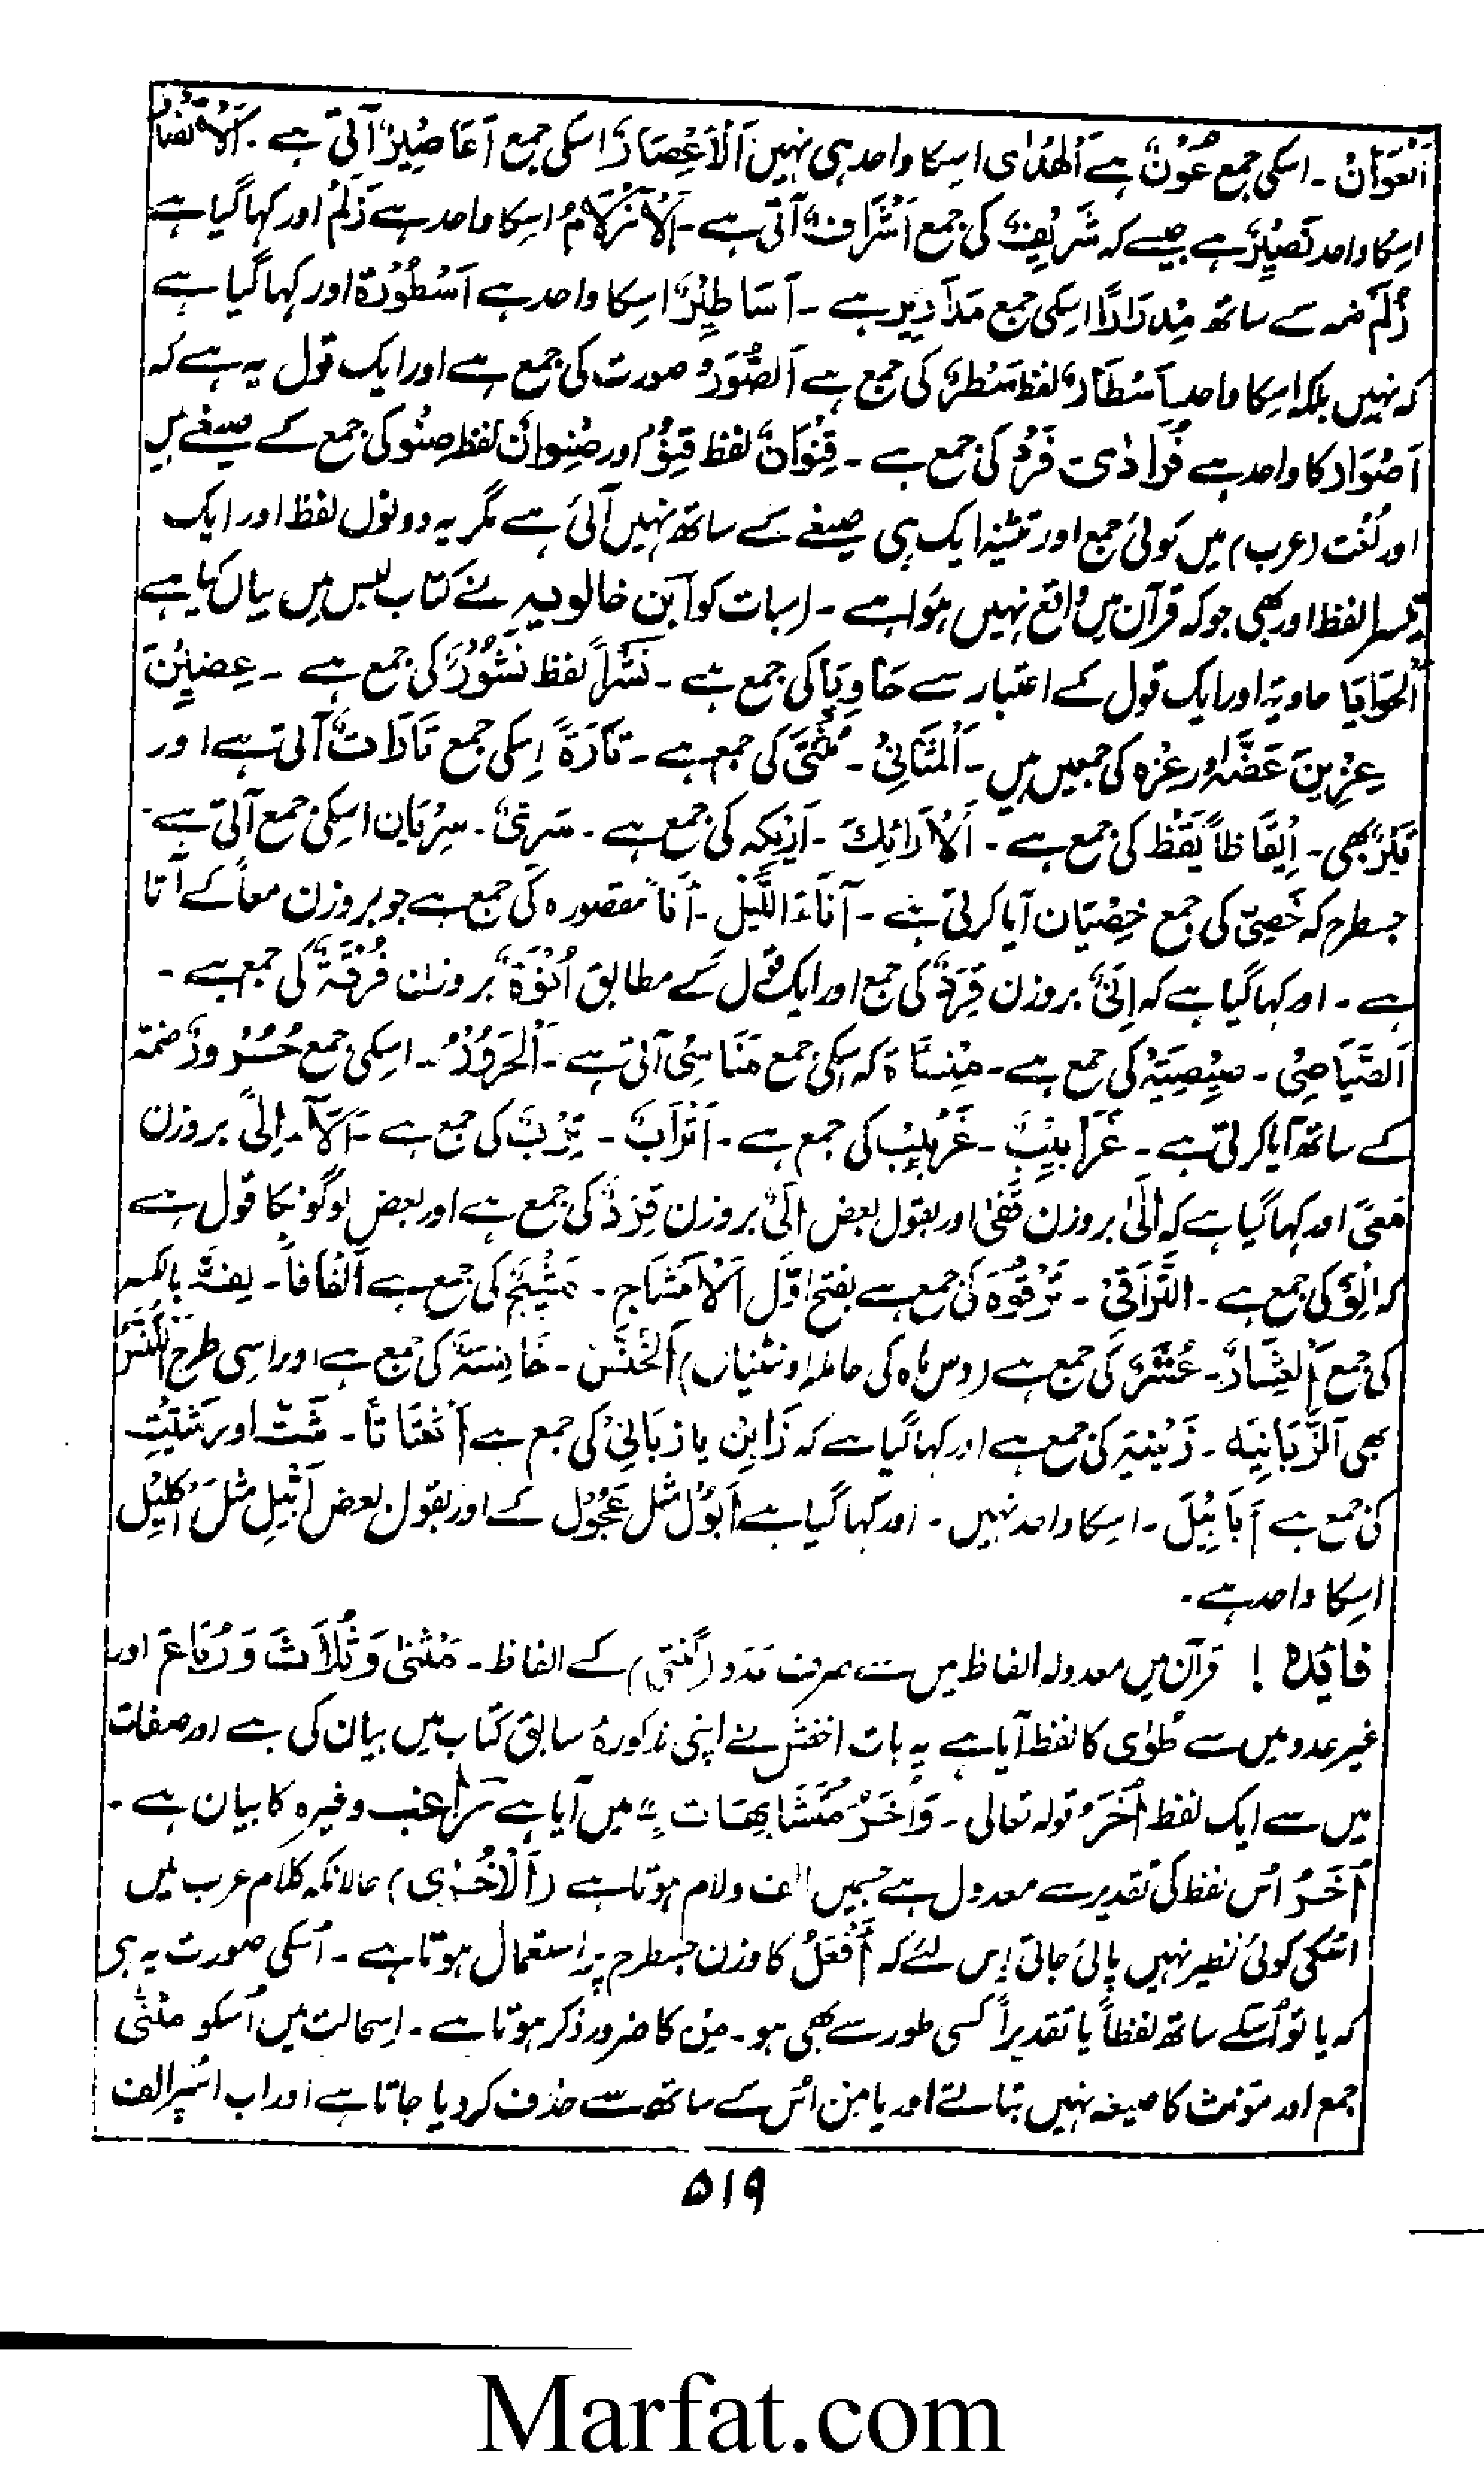 اَلْعَوَانُ۔ اسکی جمع عُوْنٌ ہے اَلْهُدٰى اسکا واحد ہی نہیں اَلْاِعْصَارُ اسکی جمع اَعَاصِیْرُ آتی ہے۔ اَلْاَنْصَارُ
اسکا واحد نَصِیْرٌ ہے جیسے کہ شَرِیْفٌ کی جمع اَشْرَافٌ آتی ہے۔ اَلْاَزْلَامُ اسکا واحد ہے زَلَمٌ اور کہا گیا ہے
زُلَمٌ ضمہ کے ساتھ مِدْرَارًا اسکی جمع مَدَارِیر ہے۔ اَسَاطِیْرُ اسکا واحد ہے اَسْطُوْرَة اور کہا گیا ہے
کہ نہیں بلکہ اسکا واحد اَسْطَارٌ لفظ سَطْرٌ کی جمع ہے اَلصُّوَرُ صورت کی جمع ہے اور ایک قول یہ ہے کہ
اَصْوَار کا واحد ہے فُرَادٰى فَرْدٌ کی جمع ہے۔ قِنْوَانٌ لفظ قِنْوٌ اور صِنْوانٌ لفظ صِنْو کی جمع کے صیغے ہیں
اور لُغت (عرب) میں کوئی جمع اور تثنیہ ایک ہی صیغے کے ساتھ نہیں آئی ہے مگر یہ دونوں لفظ اور ایک
تیسرا لفظ اور بھی جو کہ قرآن میں واقع نہیں ہوا ہے۔ اسبات کو ابن خالویہ نے کتاب لیس میں بیان کیا ہے
اَلْحَوَایَا حاویہ اور ایک قول کے اعتبار سے حَاوِیَا کی جمع ہے۔ نَشْراً لفظ نَشُوْرٌ کی جمع ہے۔ عِضِیْنَ
عِزِیْنَ عَضَّہ اور عزہ کی جمعیں ہیں۔ اَلْمَثَانِیْ۔ مُثَنّٰی کی جمع ہے۔ تَارَةً اسکی جمع تَارَاتٌ آتی ہے اور
تِیَرٌ بھی۔ اَیْقَاظاً یَقَظ کی جمع ہے۔ اَلْاَرَائِكَ۔ اَرِیْکہ کی جمع ہے۔ سَرِیٌّ۔ سِرْیَان اسکی جمع آتی ہے۔
جسطرح کہ خَصِیّ کی جمع خِصْیَان آیا کرتی ہے۔ آنَاءَ اللَّیْل۔ اَناً مقصورہ کی جمع ہے جو بروزن معاً کے آتا
ہے۔ اور کہا گیا ہے کہ اِنْیٌ بروزن قِرَدٌ کی جمع اور ایک قول کے مطابق اُنْوَةٌ بروزن فُرْقَةٌ کی جمع ہے۔
اَلصَّیَاصِیْ۔ صِیْصِیَۃ کی جمع ہے۔ مِنْسَاَۃ کہ اسکی جمع مَنَاسِیُٔ آتی ہے۔ اَلْحَرُوْرُ۔ اسکی جمع حُرُوْر ضمہ
کے ساتھ آیا کرتی ہے۔ غَرَابِیْبُ۔ غِرْبِیْبٌ کی جمع ہے۔ اَتْرَابٌ۔ تِرْبٌ کی جمع ہے۔ اَلآءِ اِلیً بروزن
مَعیً اور کہا گیا ہے کہ اَلیٰ بروزن قَفیٰ اور بقول بعض اِلْیٌ بروزن قِرْدٌ کی جمع ہے اور بعض لوگونکا قول ہے
کہ اِلْوٌ کی جمع ہے۔ التَّرَاقِیْ۔ تَرْقُوَةٌ کی جمع ہے بفتح اوّل اَلْاَمْشَاجِ۔ مَشِیْجٌ کی جمع ہے اَلْفَافاً۔ لِفٌّ بالکسر
کی جمع اَلْعِشَارُ۔ عُشَرٌ کی جمع ہے (دس ماہ کی حاملہ اونٹنیاں) اَلْخُنَّسْ۔ خَانِسَةٌ کی جمع ہے اور اسی طرح اَلْكُنَّسْ
بھی اَلزَّبَانِیَه۔ زَبْنِیَۃ کی جمع ہے اور کہا گیا ہے کہ زَابِن یا زَبَانِیْ کی جمع ہے اَشْتَاتًا۔ شَتّ اور شَتِیْتٌ
کی جمع ہے اَبَابِیْلَ۔ اسکا واحد نہیں۔ اور کہا گیا ہے اِبَوَّلْ مثل عِجَوْل کے اور بقول بعض اِبِّیْل مثل اِکْلِیْل
اسکا واحد ہے۔
فائدہ! قرآن میں معدولہ الفاظ میں سے صرف عدد (گنتی) کے الفاظ۔ مَثْنٰی وَثُلَاثَ وَرُبَاعَ اور
غیر عدد میں سے طُوٰی کا لفظ آیا ہے یہ بات اخفش نے اپنی مذکورہ سابق کتاب میں بیان کی ہے اور صفات
میں سے ایک لفظ اُخَرُ قولہ تعالی۔ وَاُخَرُ مُتَشَابِهَات میں آیا ہے راغب وغیرہ کا بیان ہے۔
اُخَرُ اُس لفظ کی تقدیر سے معدول ہے جسمیں الف ولام ہوتا ہے (اَلْاُخْرٰی) حالانکہ کلام عرب میں
اسکی کوئی نظیر نہیں پائی جاتی اس لئے کہ اَفْعَلُ کا وزن جسطرح پر استعمال ہوتا ہے۔ اُسکی صورت یہ ہی
کہ یا تو اُسکے ساتھ لفظاً یا تقدیراً کسی طور سے بھی ہو۔ مِن کا ضرور ذکر ہوتا ہے۔ اِسحالت میں اُسکو مثنٰی
جمع اور مؤنث کا صیغہ نہیں بناتے اور یا مِن اُس کے ساتھ سے حذف کر دیا جاتا ہے اور اب اسپر الف
۵۱۹
Marfat.com